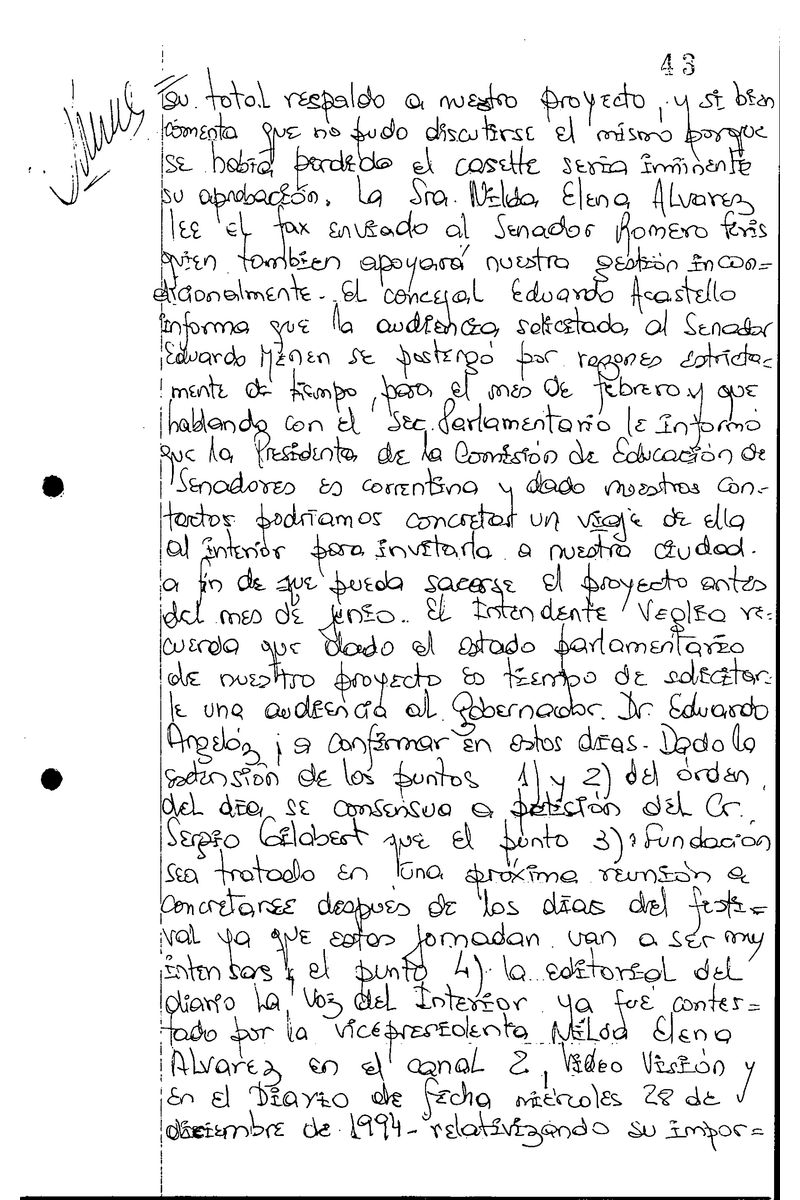 43
su total respaldo a nuestro proyecto, y si bien
comenta que no pudo discutirse el mismo porque
se había perdido el casette sería inminente
su aprobación. La Sra. Nilda Elena Alvarez
lee el fax enviado al Senador Romero Feris
quien tambien apoyará nuestra gestión incon=
dicionalmente. El concejal Eduardo Acastello
informa que la audiencia solicitada al Senador
Eduardo Menen se postergó por razones estricta=
mente de tiempo, para el mes de febrero y que
hablando con el Sec. Parlamentario le informó
que la Presidenta de la Comisión de Educación de
Senadores es correntina y dado nuestros con-
tactos podríamos concretar un viaje de ella
al interior para invitarla a nuestra ciudad.
a fin de que pueda sacarse el proyecto antes
del mes de junio. El Intendente Veglia re=
cuerda que dado el estado parlamentario
de nuestro proyecto es tiempo de solicitar=
le una audiencia al Gobernador Dr. Eduardo
Angeloz, a confirmar en estos días. Dado la
extensión de los puntos 1) y 2) del órden
del día, se consensua a petición del Cr.
Sergio Gilabert que el punto 3): Fundación
sea tratado en una próxima reunión a
concretarse después de los días del festi=
val ya que estas jornadan van a ser muy
intensas; el punto 4). la editorial del
diario La Voz del Interior ya fué contes=
tado por la vicepresidenta Nilda Elena
Alvarez en el canal 2, Video Visión y
en el Diario de fecha miércoles 28 de
diciembre de 1994- relativizando su impor=